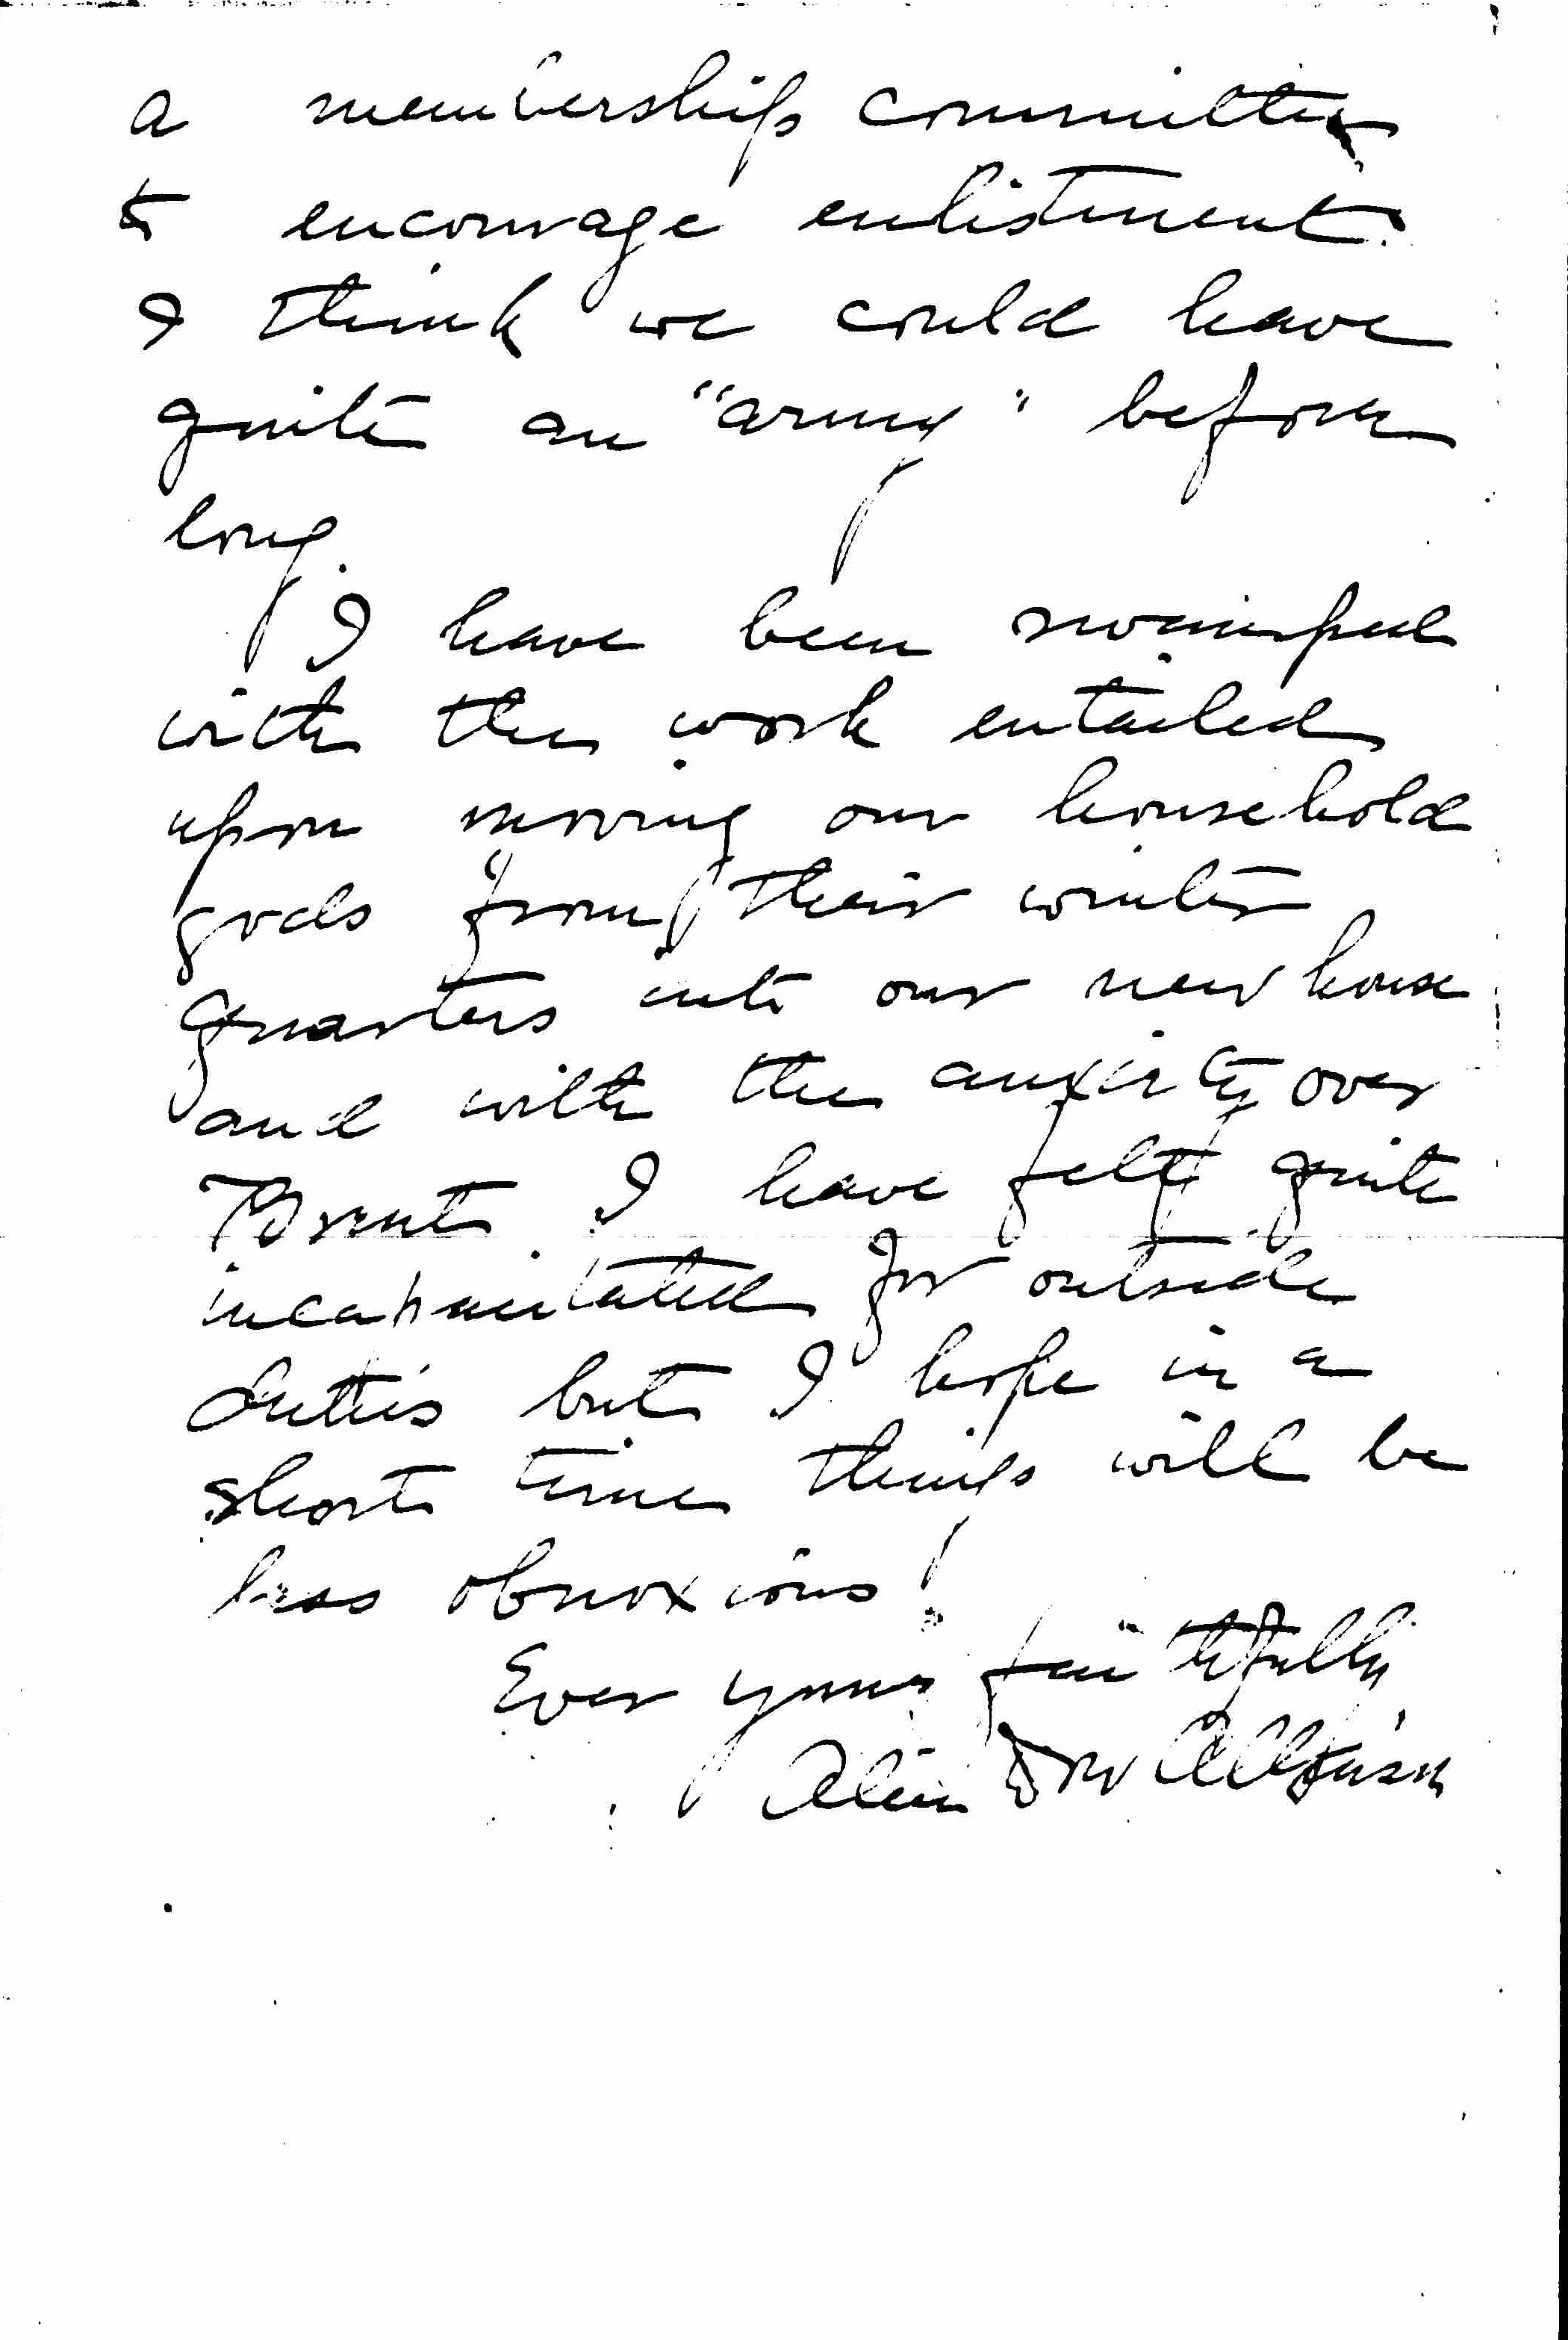 a membership committee
to encourage enlistment.
I think we could have
quite an "army" before
long.
I have been swamped
with the work entailed
upon moving our household
gods from their winter
quarters into our new house
and with the anxiety over
Brent I have felt quite
incapacitated for outside
duties but I hope in a
short time things will be
less obnoxious!
Ever yours faithfully,